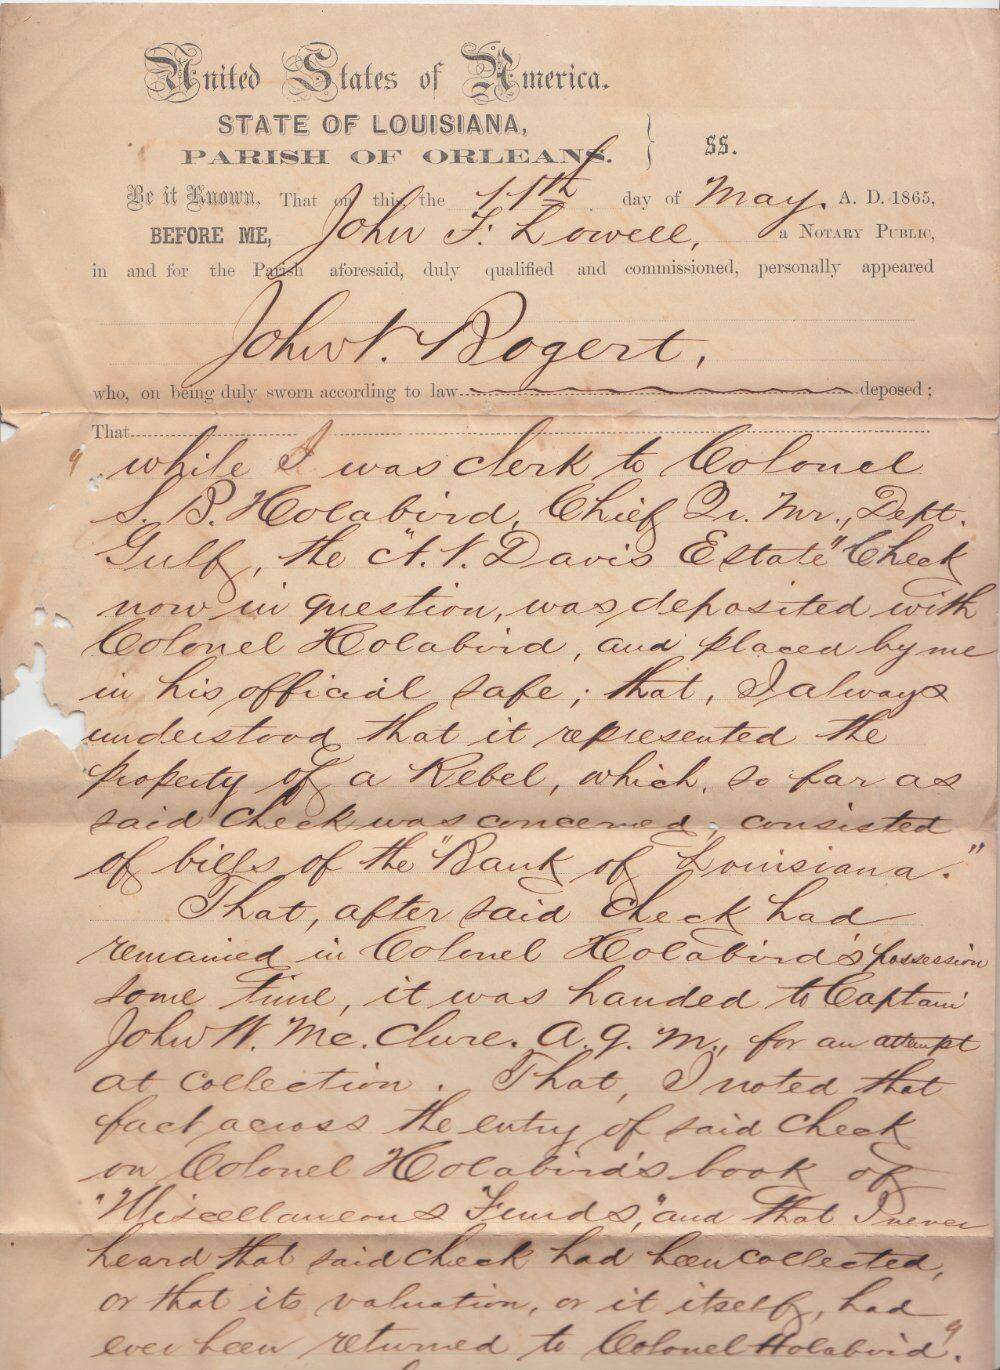 United States of America.
STATE OF LOUISIANA,
PARISH OF ORLEANS. } SS.
Be it Known, That on this the 11th day of May, A. D. 1865,
BEFORE ME, John F. Lowell, a NOTARY PUBLIC,
in and for the Parish aforesaid, duly qualified and commissioned, personally appeared
John V. Bogert,
who, on being duly sworn according to law deposed;
That
" while I was clerk to Colonel
S. B. Holabird, Chief Qr. Mr., Dept.
Gulf, the "A. V. Davis Estate" Check
now in question, was deposited with
Colonel Holabird, and placed by me
in his official safe; that, I always
understood that it represented the
property of a Rebel, which, so far as
said Check was concerned, consisted
of bills of the "Bank of Louisiana."
That, after said Check had
remained in Colonel Holabird's possession
some time, it was handed to Captain
John W. Mc. Clure. A. Q. M., for an attempt
at collection. That, I noted that
fact across the entry of said Check
on Colonel Holabird's book of
"Miscellaneous Funds," and that I never
heard that said Check had been collected,
or that its valuation, or it itself, had
ever been returned to Colonel Holabird."